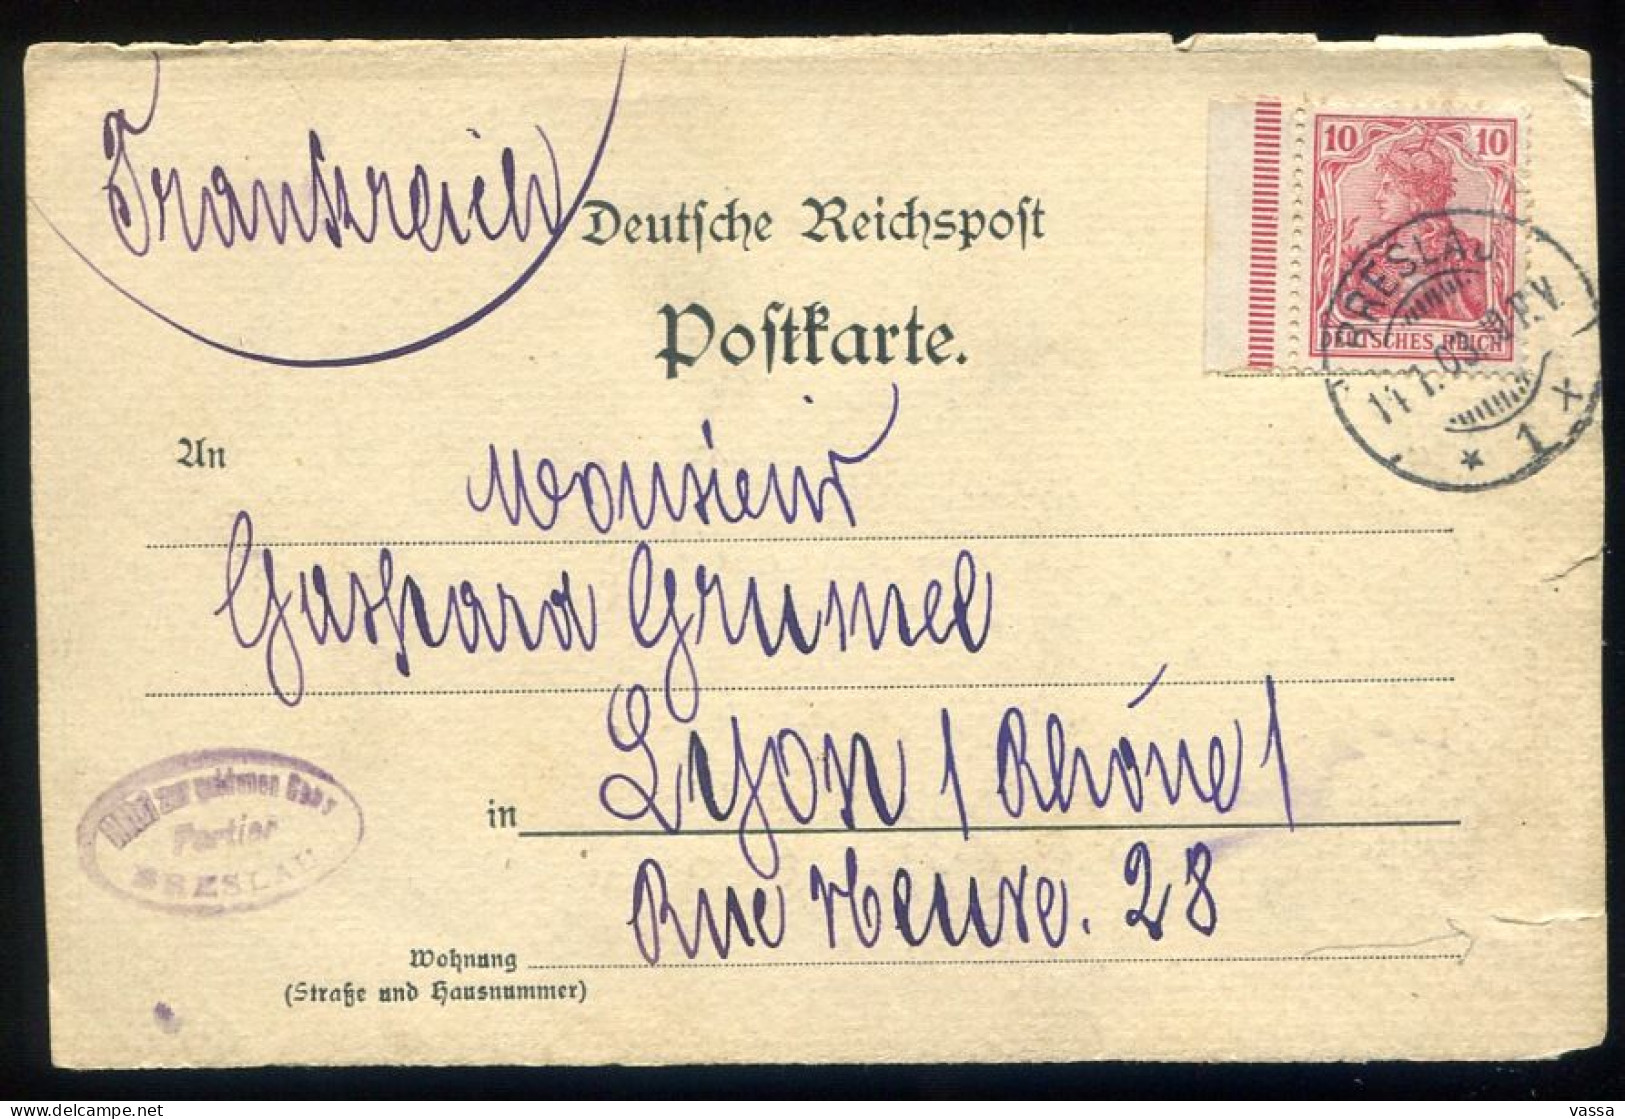 Frankreich
Deutsche Reichspost
Postkarte.
10 10
DEUTSCHES REICH
BRESLAU
14 1.03
P.V.
* 1 x
An Monsieur
Gaspard Grumel
in Lyon / Rhône /
Rue Neuve. 28
Wohnung
(Straße und Hausnummer)
Hôtel zur goldenen Gans
Portier
BRESLAU
delcampe.net
vassa